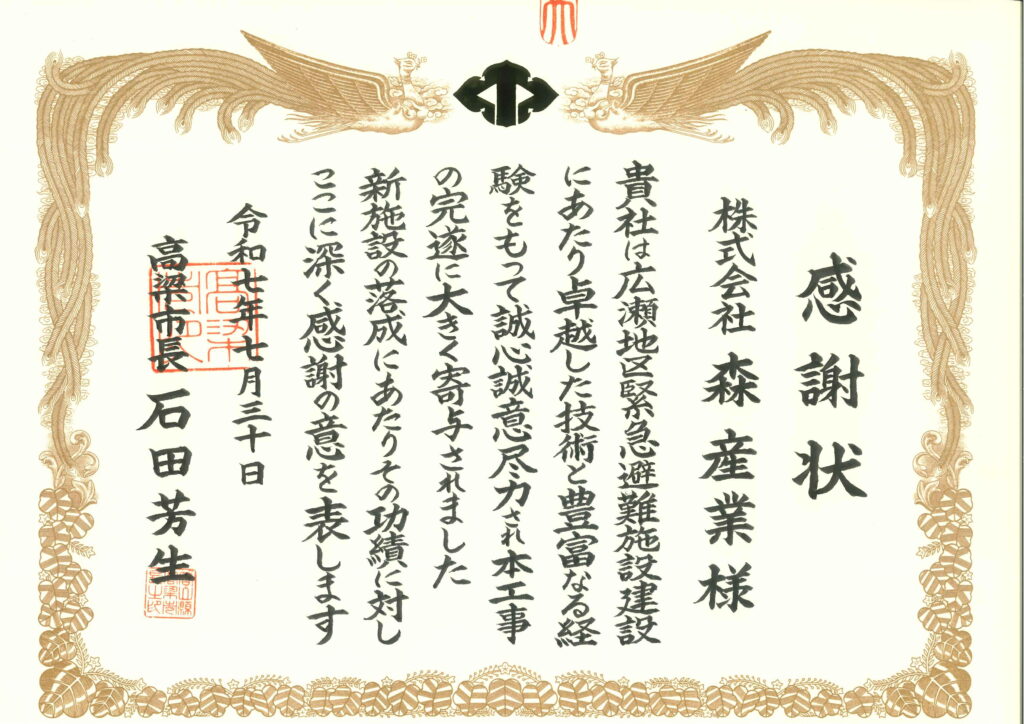 感謝状
株式会社 森産業 様
貴社は広瀬地区緊急避難施設建設
にあたり卓越した技術と豊富なる経
験をもって誠心誠意尽力され本工事
の完遂に大きく寄与されました
新施設の落成にあたりその功績に対し
ここに深く感謝の意を表します
令和七年七月三十日
高梁市長 石田芳生